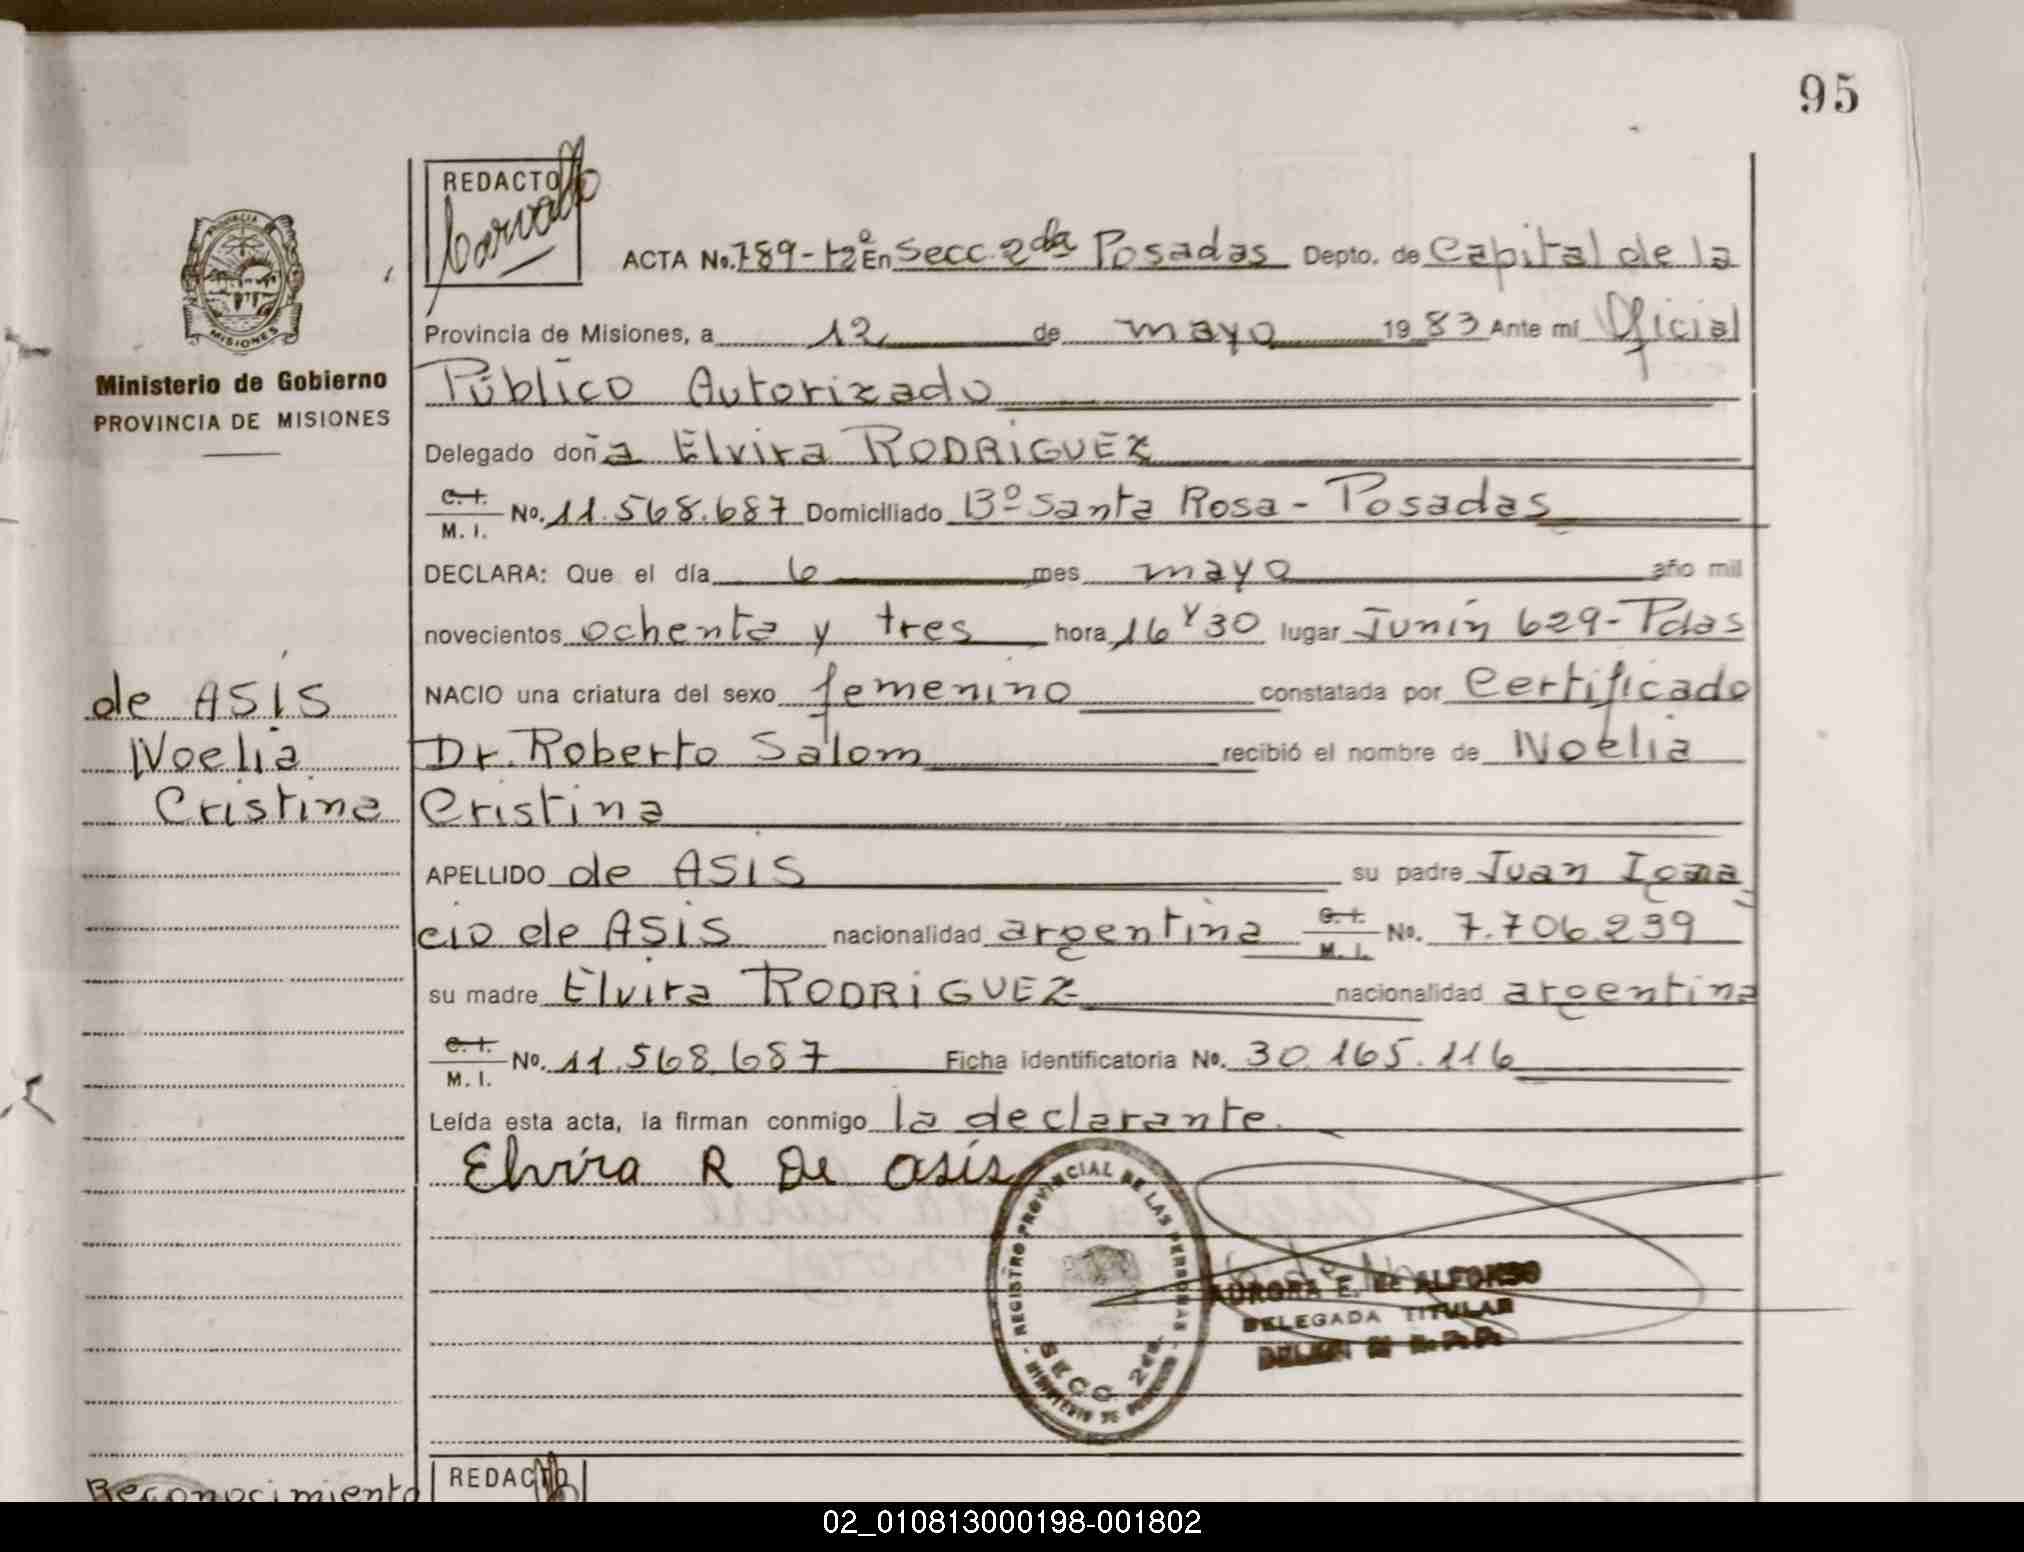 95
REDACTO
Carvallo
ACTA No. 789-t2º En Secc. 2da Posadas Depto. de Capital de la
PROVINCIA
MISIONES
Ministerio de Gobierno
PROVINCIA DE MISIONES
Provincia de Misiones, a 12 de mayo 1983 Ante mí Oficial
Público Autorizado
Delegado doña Elvira RODRIGUEZ
C. I. / M. I. No. 11.568.687 Domiciliado Bº Santa Rosa - Posadas
DECLARA: Que el día 6 mes mayo año mil
novecientos ochenta y tres hora 16 y 30 lugar Junín 629-Pdas
NACIO una criatura del sexo femenino constatada por Certificado
Dr. Roberto Salom recibió el nombre de Noelia
Cristina
de ASIS
Noelia
Cristina
APELLIDO de ASIS su padre Juan Igna
cio de ASIS nacionalidad argentina C. I. / M. I. No. 7.706.239
su madre Elvira RODRIGUEZ nacionalidad argentina
C. I. / M. I. No. 11.568.687 Ficha identificatoria No. 30.165.116
Leída esta acta, la firman conmigo la declarante.
Elvira R De asís
REGISTRO PROVINCIAL DE LAS PERSONAS
SECC. 2da.
MINISTERIO DE GOBIERNO
AURORA E. de ALFONSO
DELEGADA TITULAR
Reconocimiento
REDACTO
02_010813000198-001802